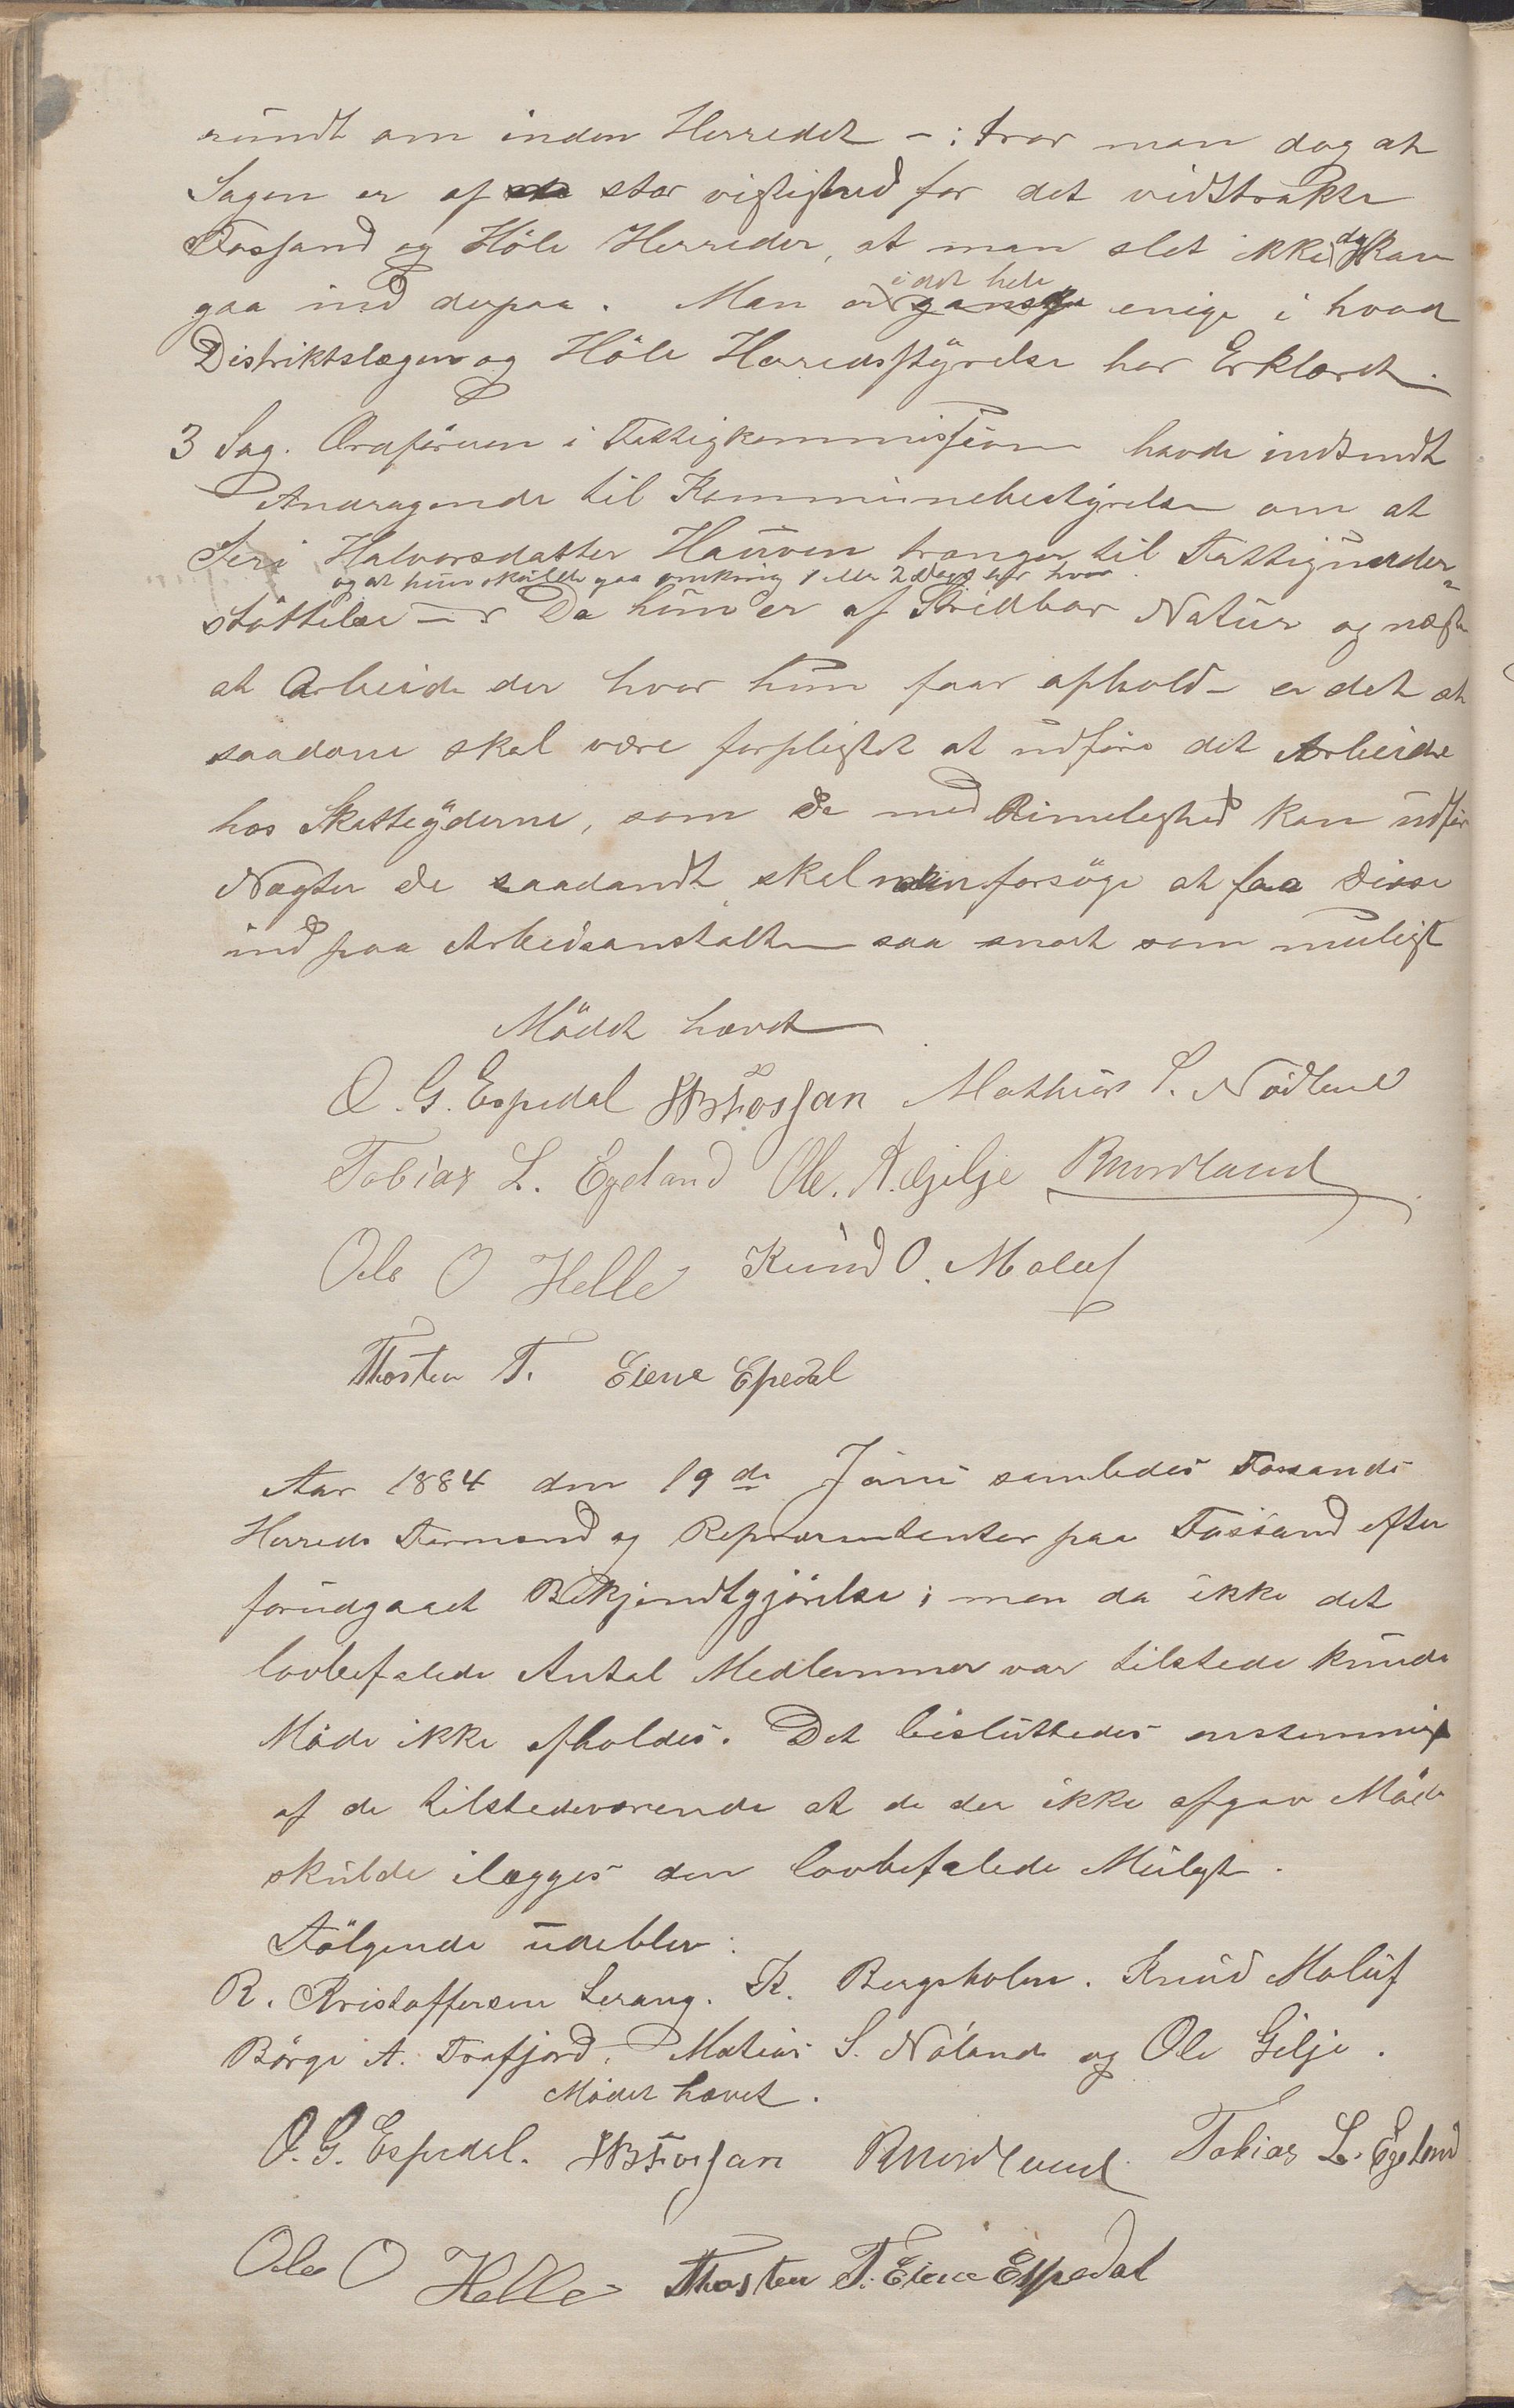 rundt om inden Herredet –: tror man dog at
Sagen er af stor vigtighed for det vidtstrakte
Fossand og Höle Herreder, at man slet ikke dog kan
gaa ind derpaa. Man er i det hele ganske enige i hvad
Distriktslægen og Höle Herredsstyrelse har Erklæret.
3 Sag. Ordföreren i Fattigkommissionen havde indsendt
Andragende til Kommunebestyrelsen om at
Seri Halvorsdatter Hauven trænger til Fattigunder-
og at hun skulde gaa omkring 1 eller 2 Dage hver
støttelse – Da hun er af Stridbar Natur og nægter
at Arbeide der hvor hun faar ophold – er det at
saadane skal være forpligtet at udføre det Arbeide
hos Skatteyderne, som De med Rimelighed kan udføre
Nægter De saadandt, skal man forsöge at faa Disse
ind paa Arbeidsanstalten saa snart som muligt
Mödet hævet
O. G. Espedal HBFossan Mathias S. Nödland
Tobias L. Egeland Ole. A. Gjilje RNordland
Ole O Helle Knud O. Maluf
Thosten T. Eiene Epedal
Aar 1884 den 19de Juni samledes Fossands
Herreds Formænd og Repræsentanter paa Fossand efter
forudgaaet Bekjendtgjörelse; men da ikke det
lovbefalede Antal Medlemmer var tilstede kunde
Möde ikke afholdes. Det besluttedes enstemmig
af de tilstedeværende at de der ikke afgav Möde
skulde ilægges den lovbefalede Mulgt.
Fölgende udeblev:
R. Kristoffersen Lerang. K. Bergsholm. Knud Maluf
Börge A. Frafjord, Matias S. Nöland og Ole Gilje.
Mödet hævet.
O. G. Espedal. HBFossan RNordland Tobias L. Egeland
Ole O Helle Thosten T. Eiene Espedal